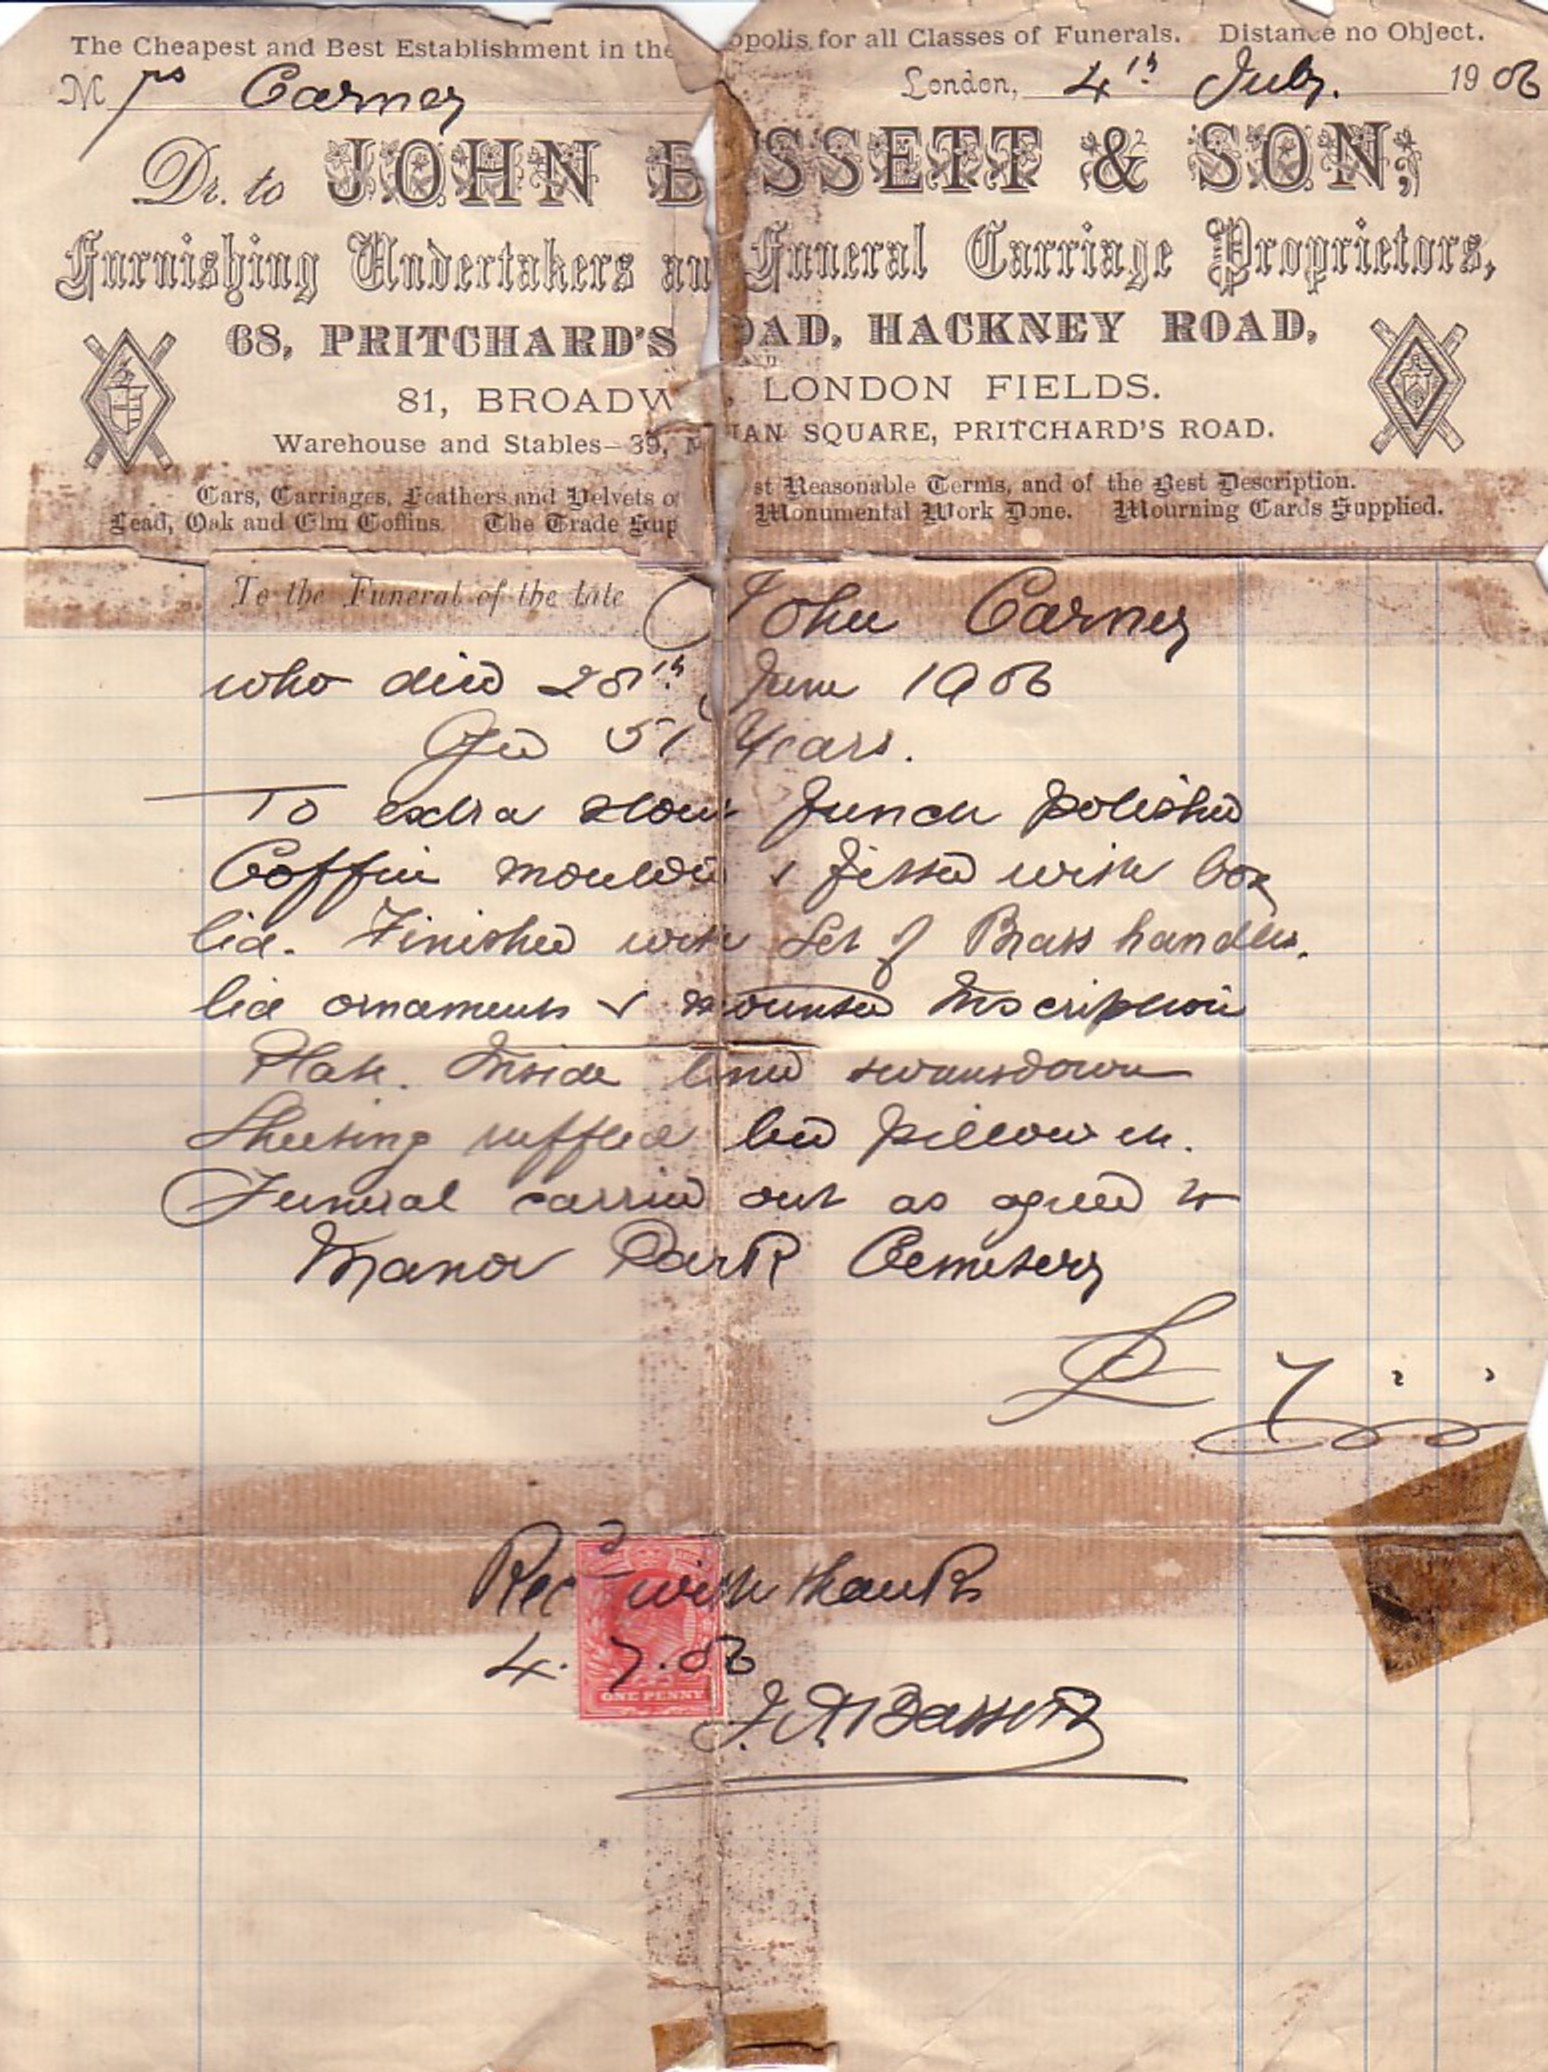 The Cheapest and Best Establishment in the opolis for all Classes of Funerals. Distance no Object.
Mrs Carney London, 4th July. 1906
Dr. to JOHN B SSETT & SON,
Furnishing Undertakers an Funeral Carriage Proprietors,
68, PRITCHARD'S OAD, HACKNEY ROAD,
AND
81, BROADW LONDON FIELDS.
Warehouse and Stables—39, M IAN SQUARE, PRITCHARD'S ROAD.
Cars, Carriages, Feathers and Velvets o st Reasonable Terms, and of the Best Description.
Lead, Oak and Elm Coffins. The Trade Sup Monumental Work Done. Mourning Cards Supplied.
To the Funeral of the late John Carney
who died 28th June 1906
Aged 51 Years.
To extra stout french polished
Coffin moulded & fitted with box
lid. Finished with Set of Brass handles.
lid ornaments & mounted Inscription
Plate. Inside lined swansdown
Sheeting ruffled bed pillow etc.
Funeral carried out as agreed to
Manor Park Cemetery
£ 7 " "
Recd with thanks
4.7.06
ONE PENNY
J. A Bassett